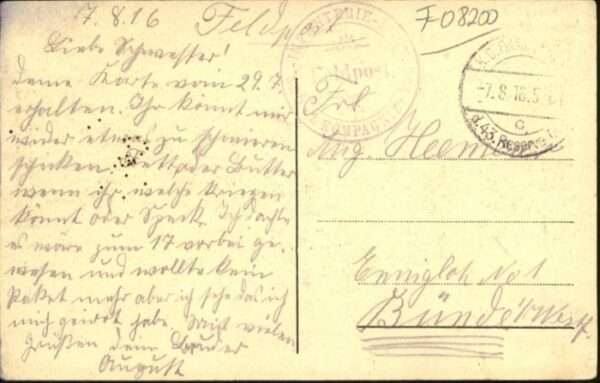 7.8.16 Feldpost
F08200
Liebe Schwester!
deine Karte vom 29.7.
erhalten. Ihr könnt mir
wider etwas zu schmieren
schicken. Fett oder Butter
wenn ihr welche kriegen
könnt oder Speck. Ich dachte
es wäre zum 17 vorbei ge-
wesen und wollte kein
Paket mehr aber ich sehe das ich
mich geirrt habe. Mit vielen
Grüßen dein Bruder
August
Feldpost
KOMPAGNIE
-7.8.16.5
c
d.43.Reserve
Frl.
Aug.
Ennigloh No 1
Bünde i/Westf.